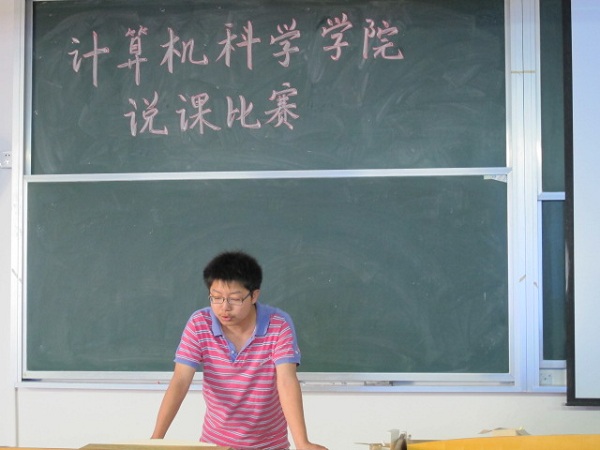 计算机科学学院
说课比赛